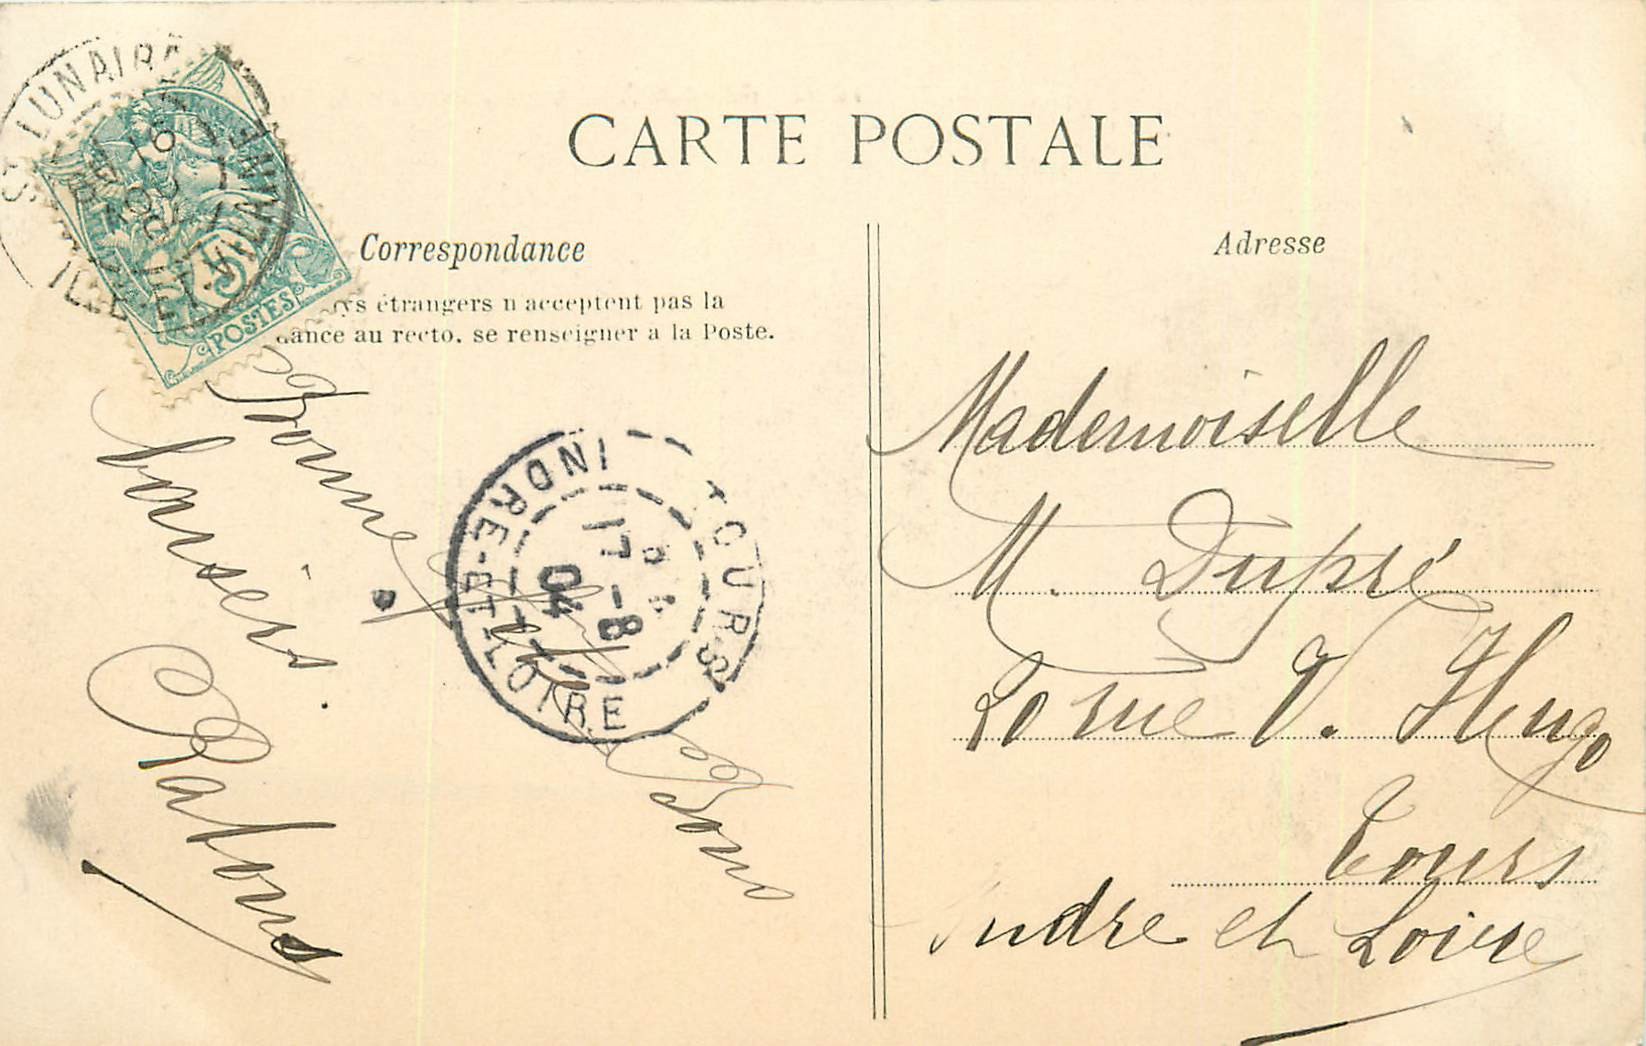 CARTE POSTALE
Correspondance
ys étrangers n'acceptent pas la
dance au recto, se renseigner à la Poste.
Adresse
Mademoiselle
M. Dupré
rue V. Hugo
Tours
Indre et Loire
Bonne fête
Bons
baisers.
ST LUNAIRE
ILLE-ET-VILAINE
5
POSTES
TOURS
INDRE-ET-LOIRE
17 -8
04